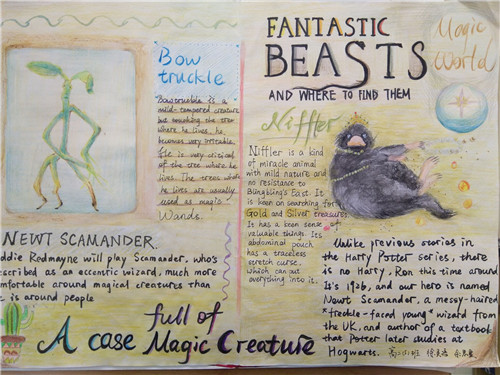 Bow
truckle
Bowtruckle is a
mild-tempered creature
but touching the tree
where he lives, he
becomes very irritable.
He is very critical
of the tree where he
lives. The trees where
he lives are usually
used as magic
Wands.
NEWT SCAMANDER.
ddie Redmayne will play Scamander, who's
escribed as an eccentric wizard, much more
mfortable around magical creatures than
e is around people
A case full of
Magic Creature
FANTASTIC
BEASTS
AND WHERE TO FIND THEM
Magic
World
Niffler
Niffler is a kind
of miracle animal
with mild nature and
no resistance to
BlingBling's East. It
is keen on searching for
Gold and Silver treasures
It has a keen sense of
valuable things. Its
abdominal pouch
has a traceless
stretch curse,
which can put
everything into it.
Unlike previous stories in
the Harry Potter Series, there
is no Harry, Ron this time around
It's 1926, and our hero is named
Newt Scamander, a messy-haired
"freckle-faced young" wizard from
the UK, and author of a textbook
that Potter later studies at
Hogwarts.